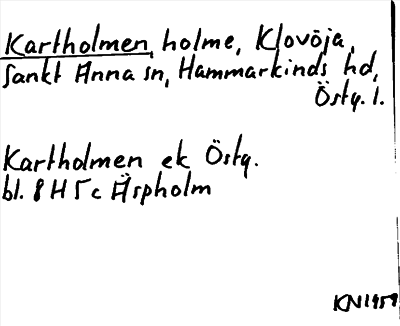 Kartholmen, holme, Klovöja,
Sankt Anna sn, Hammarkinds hd,
Östg. l.
Kartholmen ek Östg.
bl. 8 H 5 c Äspholm
KN 1959